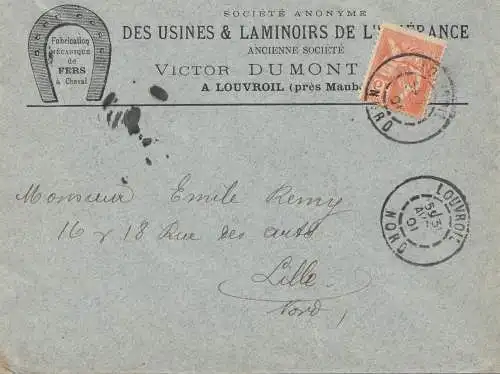 Fabrication
MÉCANIQUE
DE
FERS
à Cheval
SOCIÉTÉ ANONYME
DES USINES & LAMINOIRS DE L'ESPÉRANCE
ANCIENNE SOCIÉTÉ
VICTOR DUMONT
A LOUVROIL (près Maub
NORD
LOUVROIL
NORD
01
Monsieur Emile Remy
16 & 18 Rue des arts
Lille
Nord,